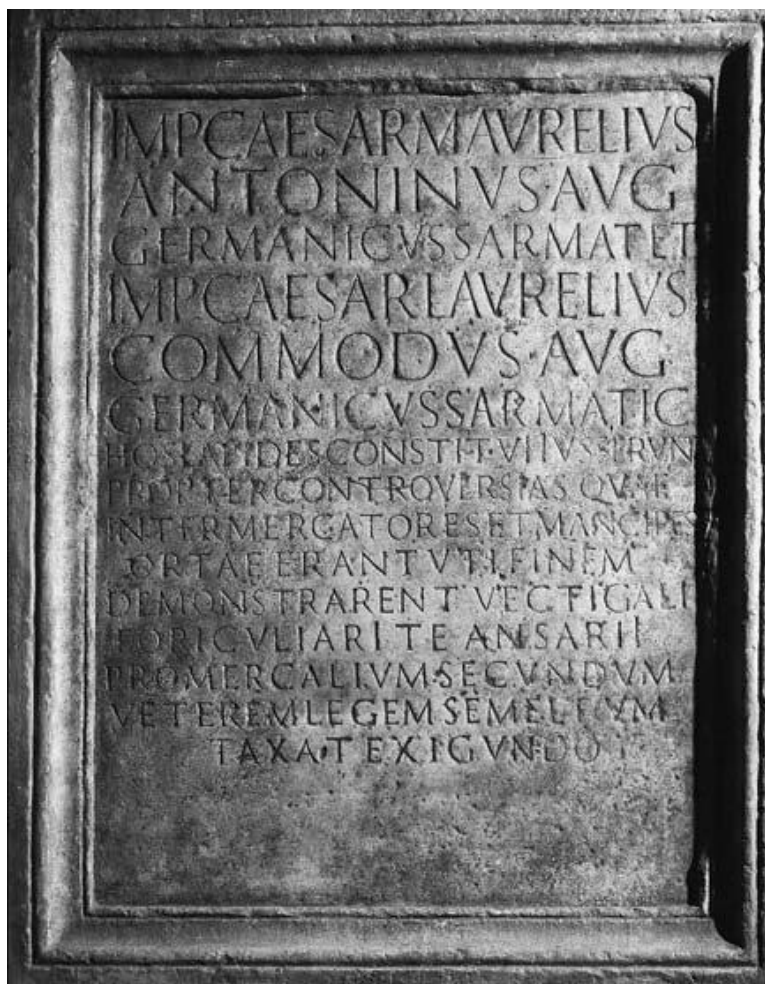 IMP CAESAR M AVRELIVS
ANTONINVS · AVG
GERMANICVS SARMAT ET
IMP CAESAR L AVRELIVS
COMMODVS · AVG
GERMANICVS SARMATIC
HOS LAPIDES CONSTITVI IVSSERVN
PROPTER CONTROVERSIAS QVAE
INTER MERCATORES ET MANCIPES
ORTAE ERANT VTI FINEM
DEMONSTRARENT VECTIGALI
FORICVLIARI T E ANSARII
PROMERCALIVM · SECVNDVM
VETEREM LEGEM SEMEL
TAXAT EXIGVNDO